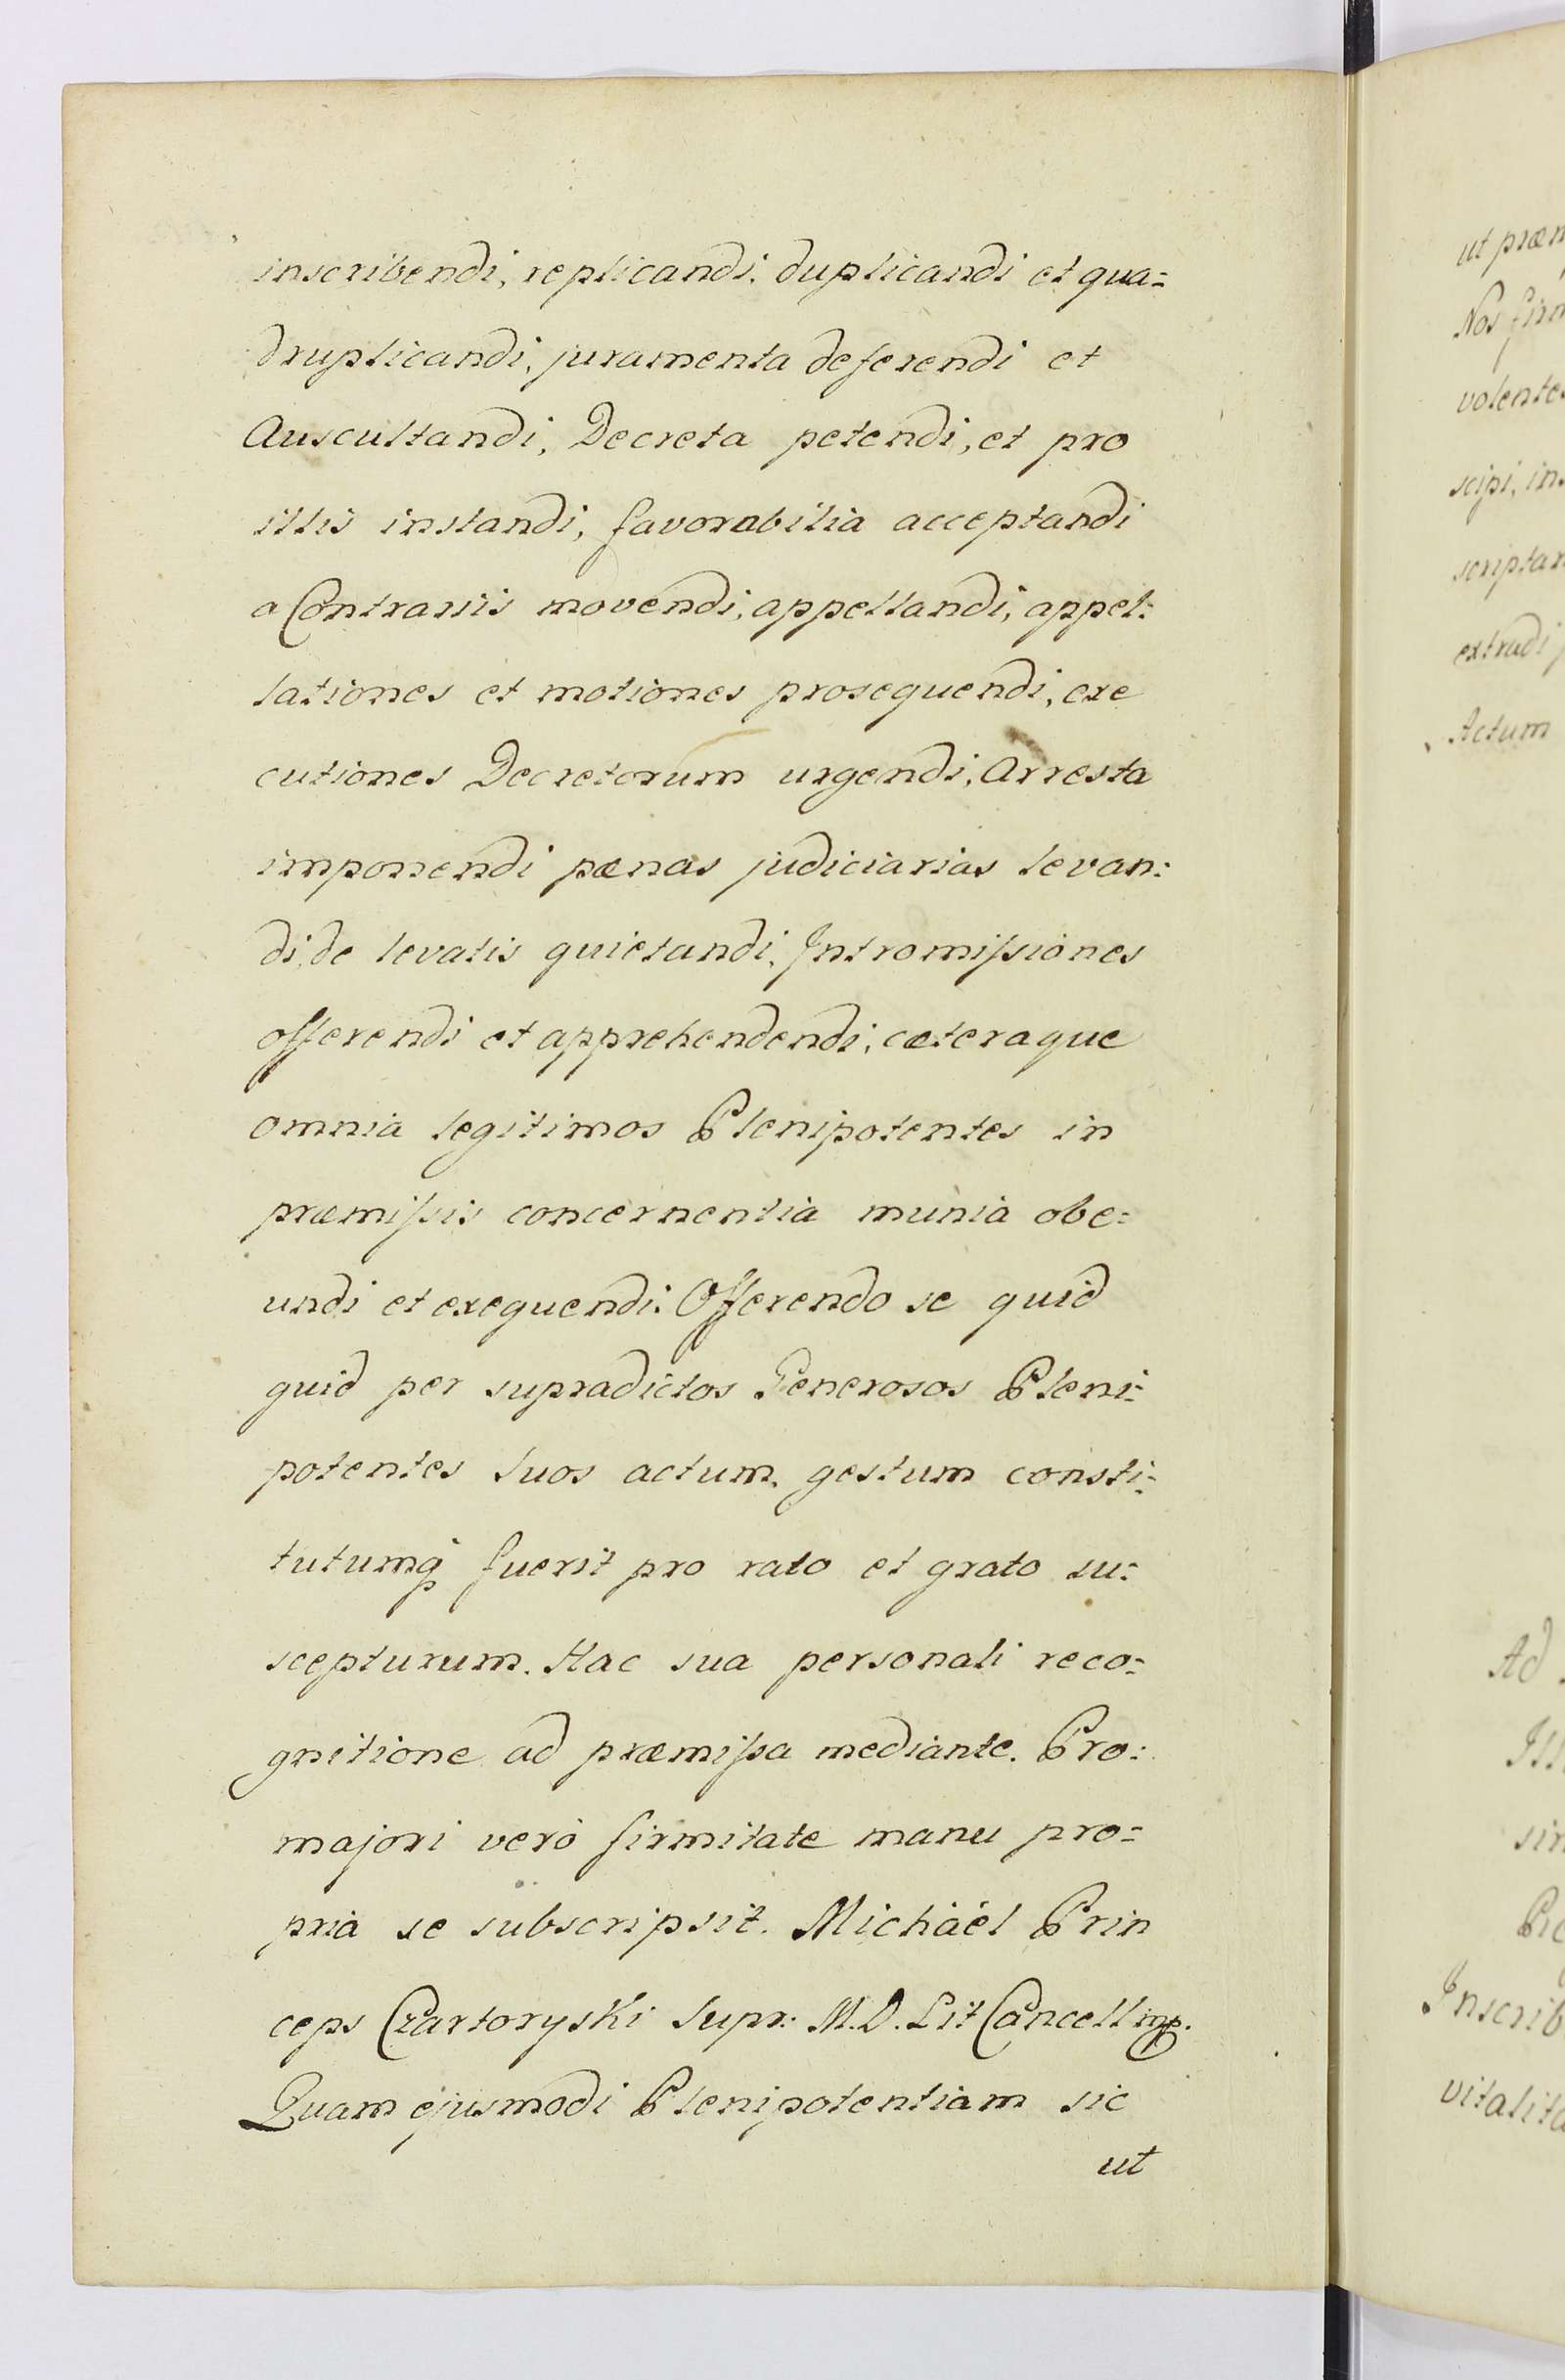 inscribendi, replicandi, duplicandi et qua=
druplicandi, juramenta deferendi et
Auscultandi, Decreta petendi, et pro
illis instandi, favorabilia acceptandi
a Contrariis movendi, appellandi, appel:
lationes et motiones prosequendi, exe
cutiones Decretorum urgendi, Arresta
imponendi pænas judiciarias levan:
di, de levatis quietandi, Intromissiones
offerendi et apprehendendi, cæteraque
omnia legitimos Plenipotentes in
præmissis concernentia munia obe=
undi et exequendi: Offerendo se quid
quid per supradictos Generosos Pleni=
potentes suos actum, gestum consti=
tutumq fuerit pro rato et grato su:
scepturum. Hac sua personali reco=
gnitione ad præmissa mediante. Pro:
majori verò firmitate manu pro=
pria se subscripsit. Michaël Prin
ceps Czartoryski Supr: M.D. Lit Cancell mp.
Quam ejusmodi Plenipotentiam sic
ut
ut præm
Nos firm
volentes
scipi, in
scriptar
extradi
Actum
Ad
Ill
sin
Inscrib
vitalita